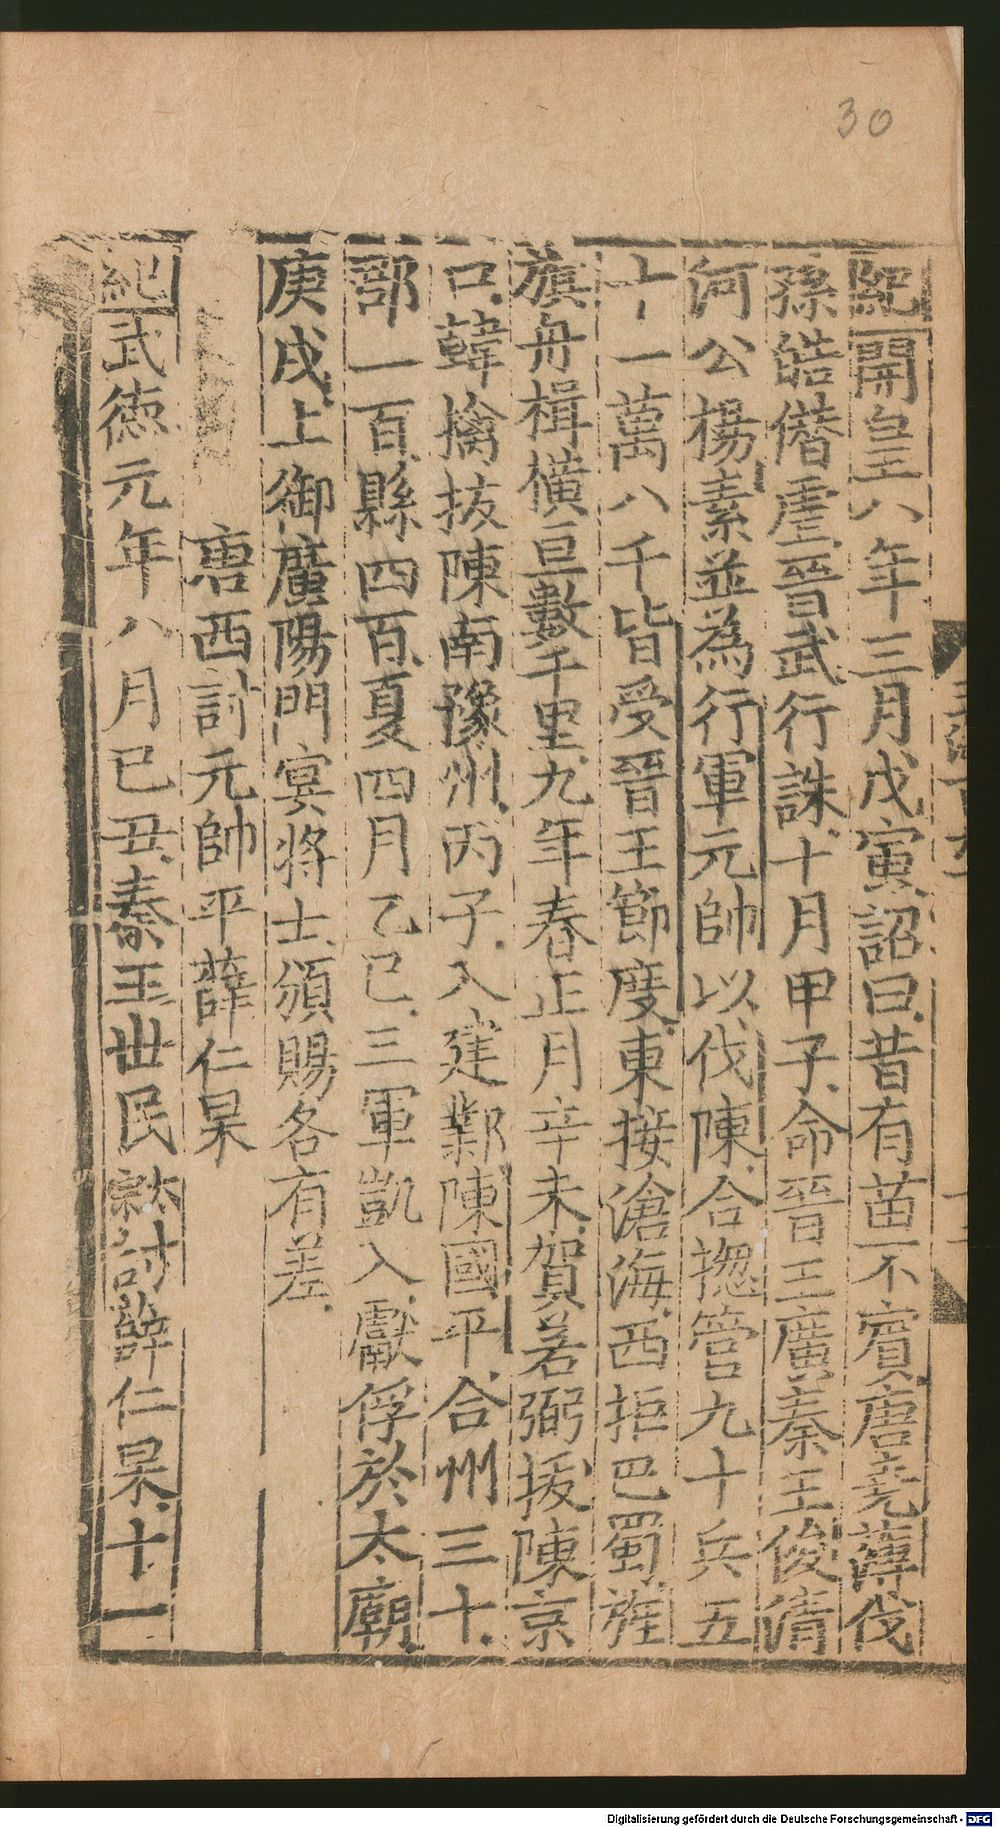 30
紀開皇八年三月戊寅詔曰昔有苗不賓唐堯薄伐
孫皓僭虐晉武行誅十月甲子命晉王廣秦王俊清
河公楊素並為行軍元帥以伐陳合揔管九十兵五
十一萬八千皆受晉王節度東接滄海西拒巴蜀旌
旗舟楫橫亘數千里九年春正月辛未賀若弼拔陳京
口韓擒拔陳南豫州丙子入建鄴陳國平合州三十
郡一百縣四百夏四月乙巳三軍凱入獻俘於太廟
庚戌上御廣陽門宴將士頒賜各有差
唐西討元帥平薛仁杲
紀武德元年八月已丑秦王世民討薛仁杲十一
Digitalisierung gefördert durch die Deutsche Forschungsgemeinschaft - DFG